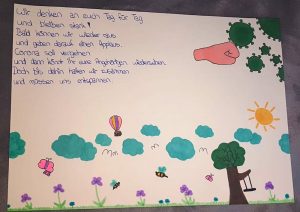 Wir denken an euch Tag für Tag
und bleiben stark!
Bald können wir wieder raus
und geben darauf einen Applaus.
Corona soll verziehen
und dann könnt ihr eure Angehörigen wiedersehen.
Doch bis dahin halten wir zusammen
und müssen uns entspannen.